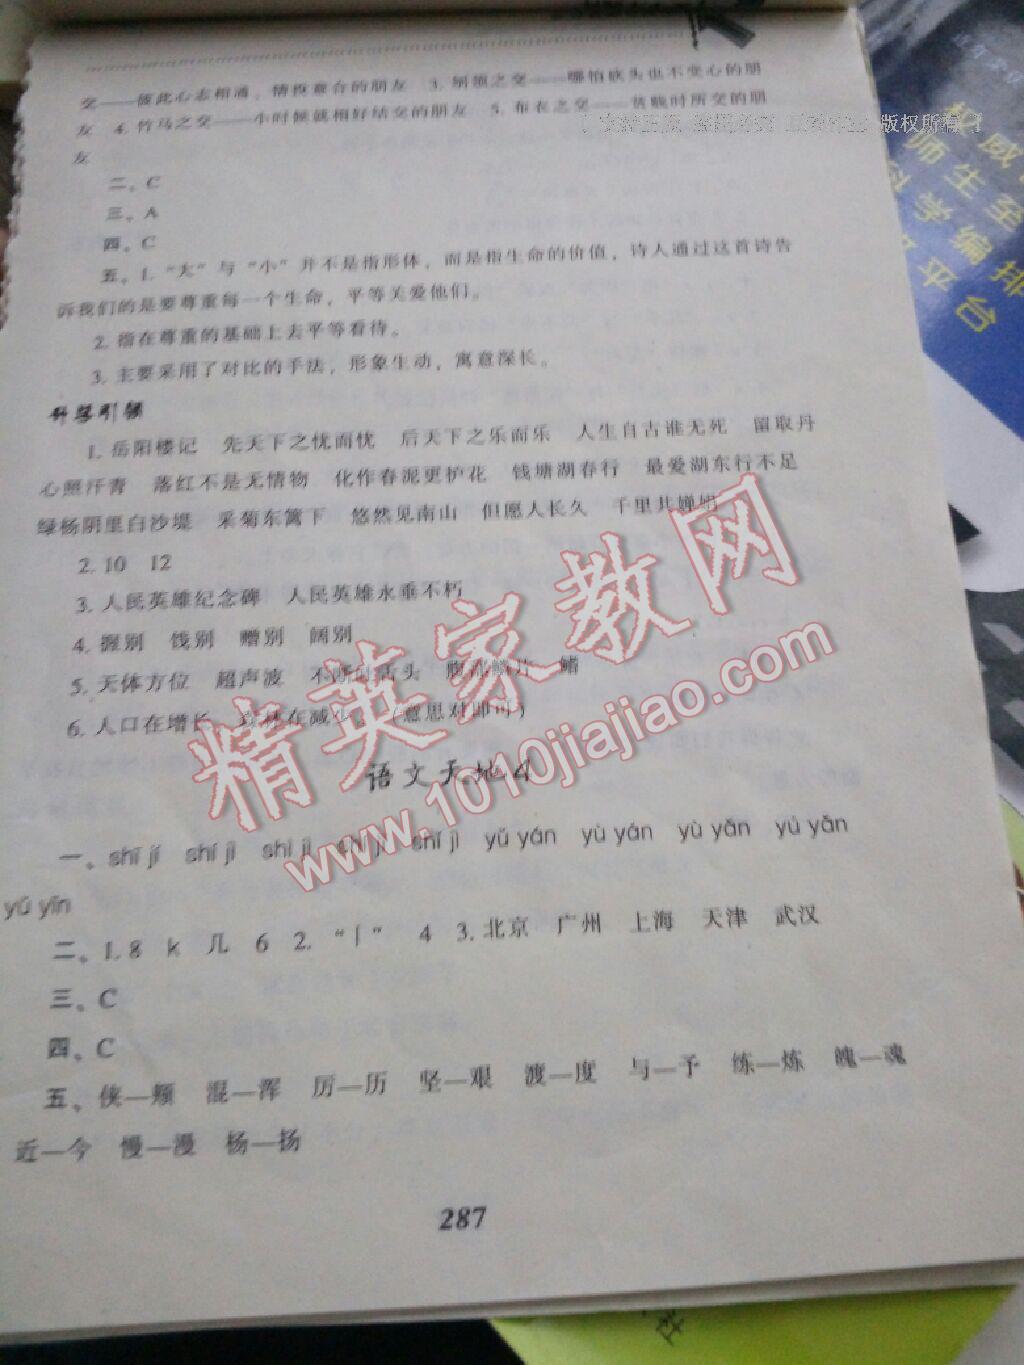 交——彼此心志相通，情投意合的朋友 3. 刎颈之交——哪怕砍头也不变心的朋
友 4. 竹马之交——小时候就相好结交的朋友 5. 布衣之交——贫贱时所交的朋
友
二、C
三、A
四、C
五、1. “大”与“小”并不是指形体，而是指生命的价值，诗人通过这首诗告
诉我们的是要尊重每一个生命，平等关爱他们。
2. 指在尊重的基础上去平等看待。
3. 主要采用了对比的手法，形象生动，寓意深长。
升学引领
1. 岳阳楼记 先天下之忧而忧 后天下之乐而乐 人生自古谁无死 留取丹
心照汗青 落红不是无情物 化作春泥更护花 钱塘湖春行 最爱湖东行不足
绿杨阴里白沙堤 采菊东篱下 悠然见南山 但愿人长久 千里共婵娟
2. 10 12
3. 人民英雄纪念碑 人民英雄永垂不朽
4. 握别 饯别 赠别 阔别
5. 天体方位 超声波 不断伸舌头 腹部鳞片 鳍
6. 人口在增长 森林在减少。（意思对即可）
语文天地4
一、shī jí shí jì shì jì shí jī shí jì yǔ yán yù yán yù yǎn yù yǎn
yǔ yīn
二、1. 8 k 几 6 2. “丨” 4 3. 北京 广州 上海 天津 武汉
三、C
四、C
五、侠—颊 混—浑 厉—历 坚—艰 渡—度 与—予 练—炼 魄—魂
近—今 慢—漫 杨—扬
287
精英家教网
www.1010jiajiao.com
版权所有
权威
师生至
科学编排
平台